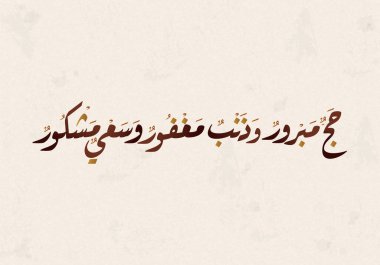 حَجٌّ مَبْرُورٌ وَذَنْبٌ مَغْفُورٌ وَسَعْيٌ مَشْكُورٌ